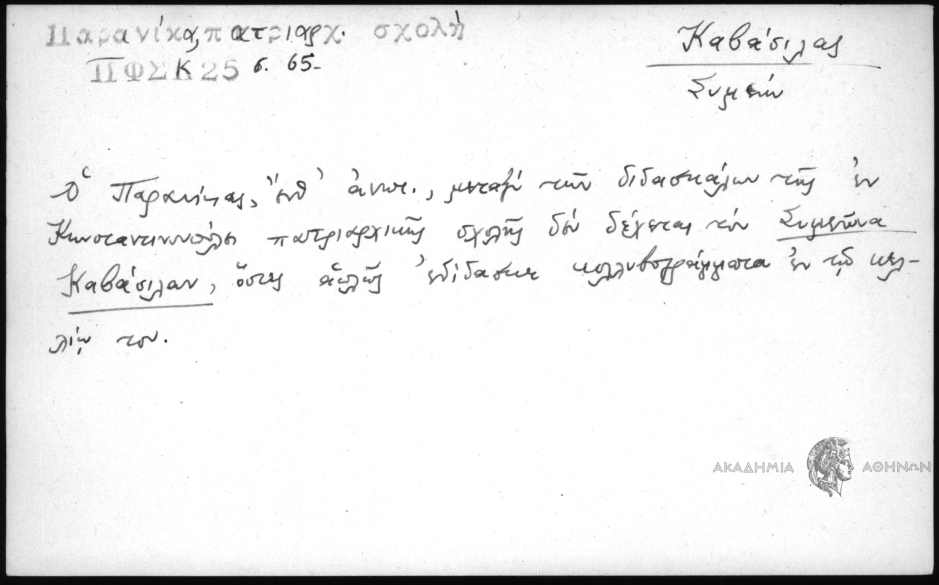 Παρανίκα, πατριαρχ. σχολή
ΠΦΣΚ 25 σ. 65-
Καβάσιλας
Συμεών
Ὁ Παρανίκας, ἔνθ' ἀνωτ., μεταξὺ τῶν διδασκάλων τῆς ἐν
Κωνσταντινουπόλει πατριαρχικῆς σχολῆς δὲν δέχεται τὸν Συμεῶνα
Καβάσιλαν, ὅστις ἁπλῶς ἐδίδασκε κολλυβογράμματα ἐν τῷ κελ-
λίῳ του.
ΑΚΑΔΗΜΙΑ ΑΘΗΝΩΝ